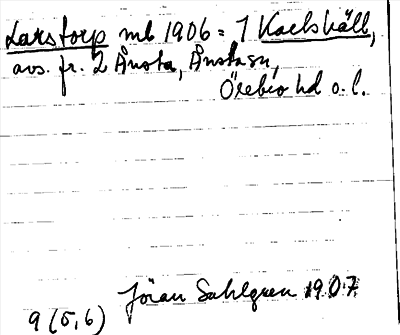 Larstorp mb 1906 = 1 Karlshäll,
avs. fr. 2 Ånsta, Ånsta sn,
Örebro hd o. l.
Jöran Sahlgren 1907
9 (5, 6)